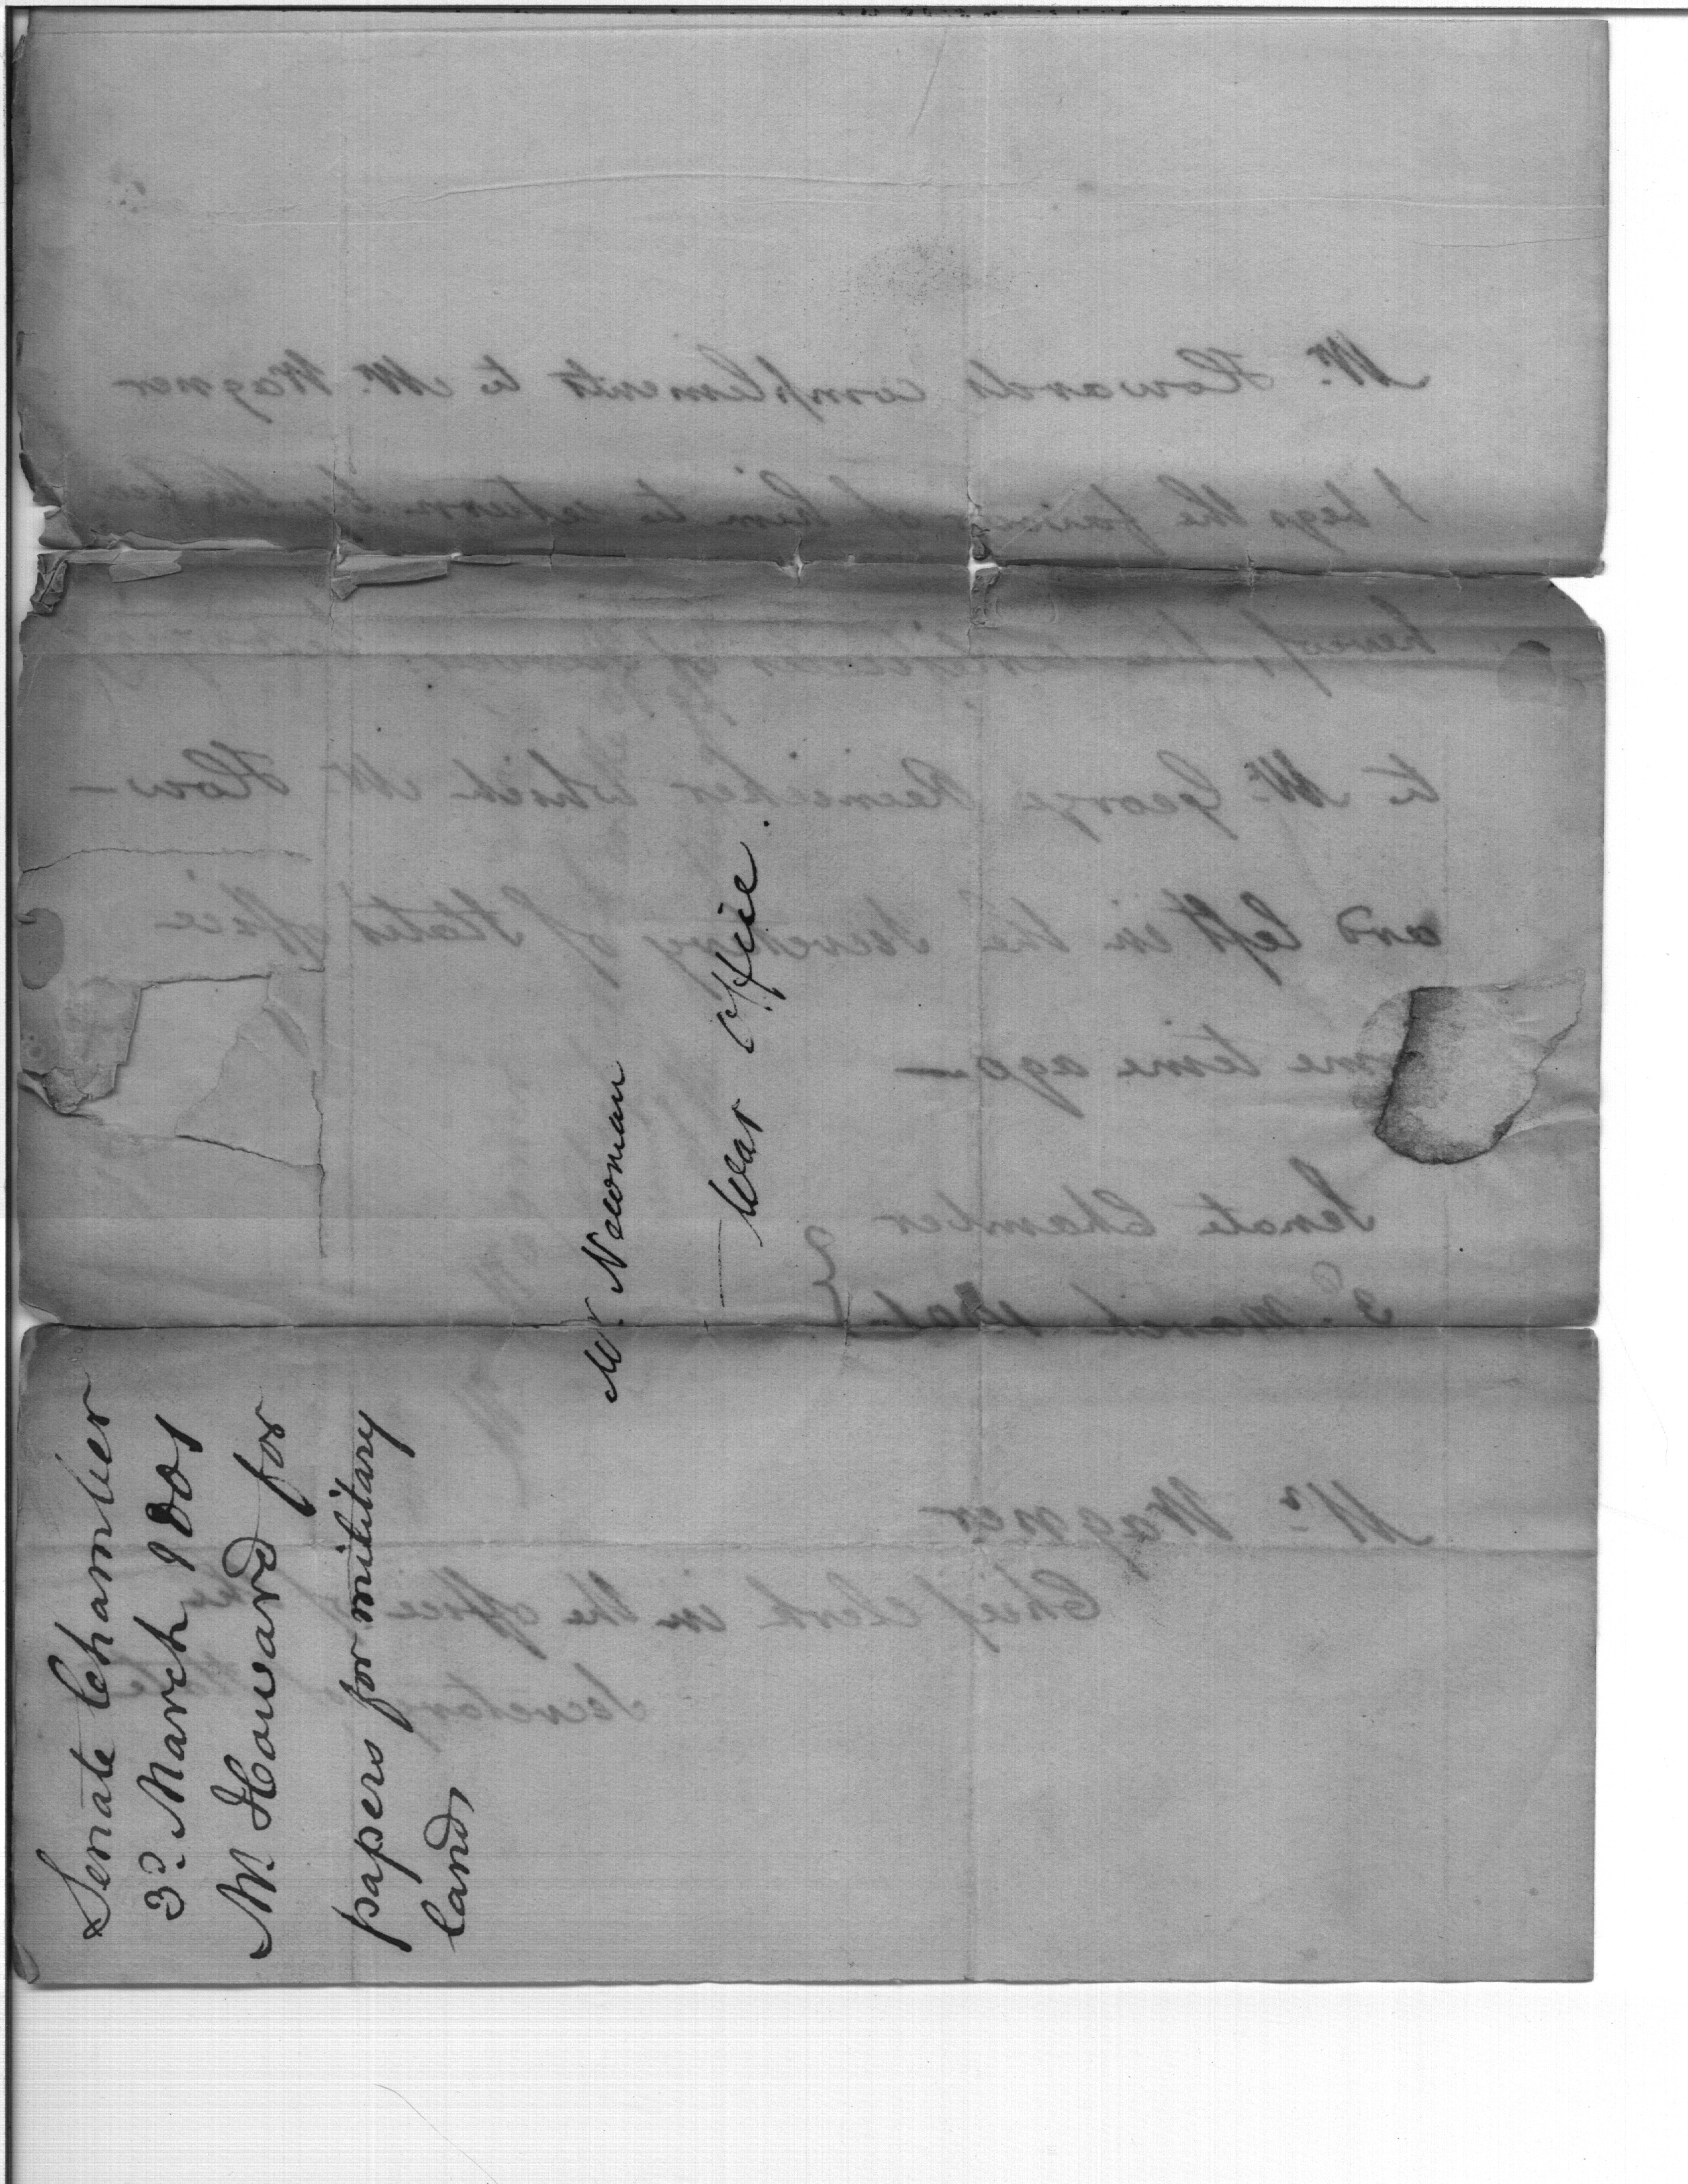 Mr. Newman
War Office.
Senate Chamber
3d. March 1801
Mr. Howard for
papers for military
lands
Mr. Howards compliments to Mr. Wagner
& begs the favour of him to return by the
hereof, the certificates of
to Mr. George Reinicker which Mr. How-
ard left in the Secretary of States office
me time ago—
Senate Chamber
3d. March 1801
Mr. Wagner
Chief Clerk in the office of the
Secretary of State